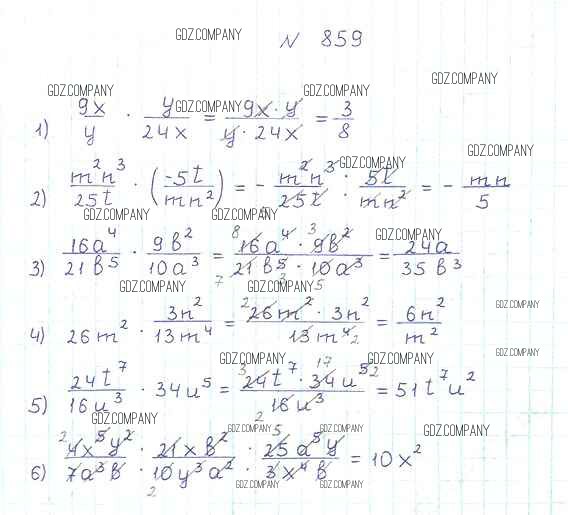 GDZ.COMPANY
N 859
GDZ.COMPANY
GDZ.COMPANY GDZ.COMPANY
1) 9x/y · y/24x = 9x·y/y·24x = 3/8
GDZ.COMPANY
GDZ.COMPANY GDZ.COMPANY
2) m²n³/25t · (-5t/mn²) = - m²n³/25t · 5t/mn² = - mn/5
GDZ.COMPANY GDZ.COMPANY
GDZ.COMPANY
3) 16a⁴/21b⁵ · 9b²/10a³ = 16a⁴·9b²/21b⁵·10a³ = 24a/35b³
GDZ.COMPANY GDZ.COMPANY
GDZ.COMPANY
4) 26m² · 3n²/13m⁴ = 26m²·3n²/13m⁴ = 6n²/m²
GDZ.COMPANY GDZ.COMPANY GDZ.COMPANY
5) 24t⁷/16u³ · 34u⁵ = 24t⁷·34u⁵/16u³ = 51t⁷u²
GDZ.COMPANY GDZ.COMPANY GDZ.COMPANY GDZ.COMPANY
6) 4x⁵y²/7a³b · 21xb²/10y³a² · 25a⁵y/3x⁴b = 10x²
GDZ.COMPANY GDZ.COMPANY